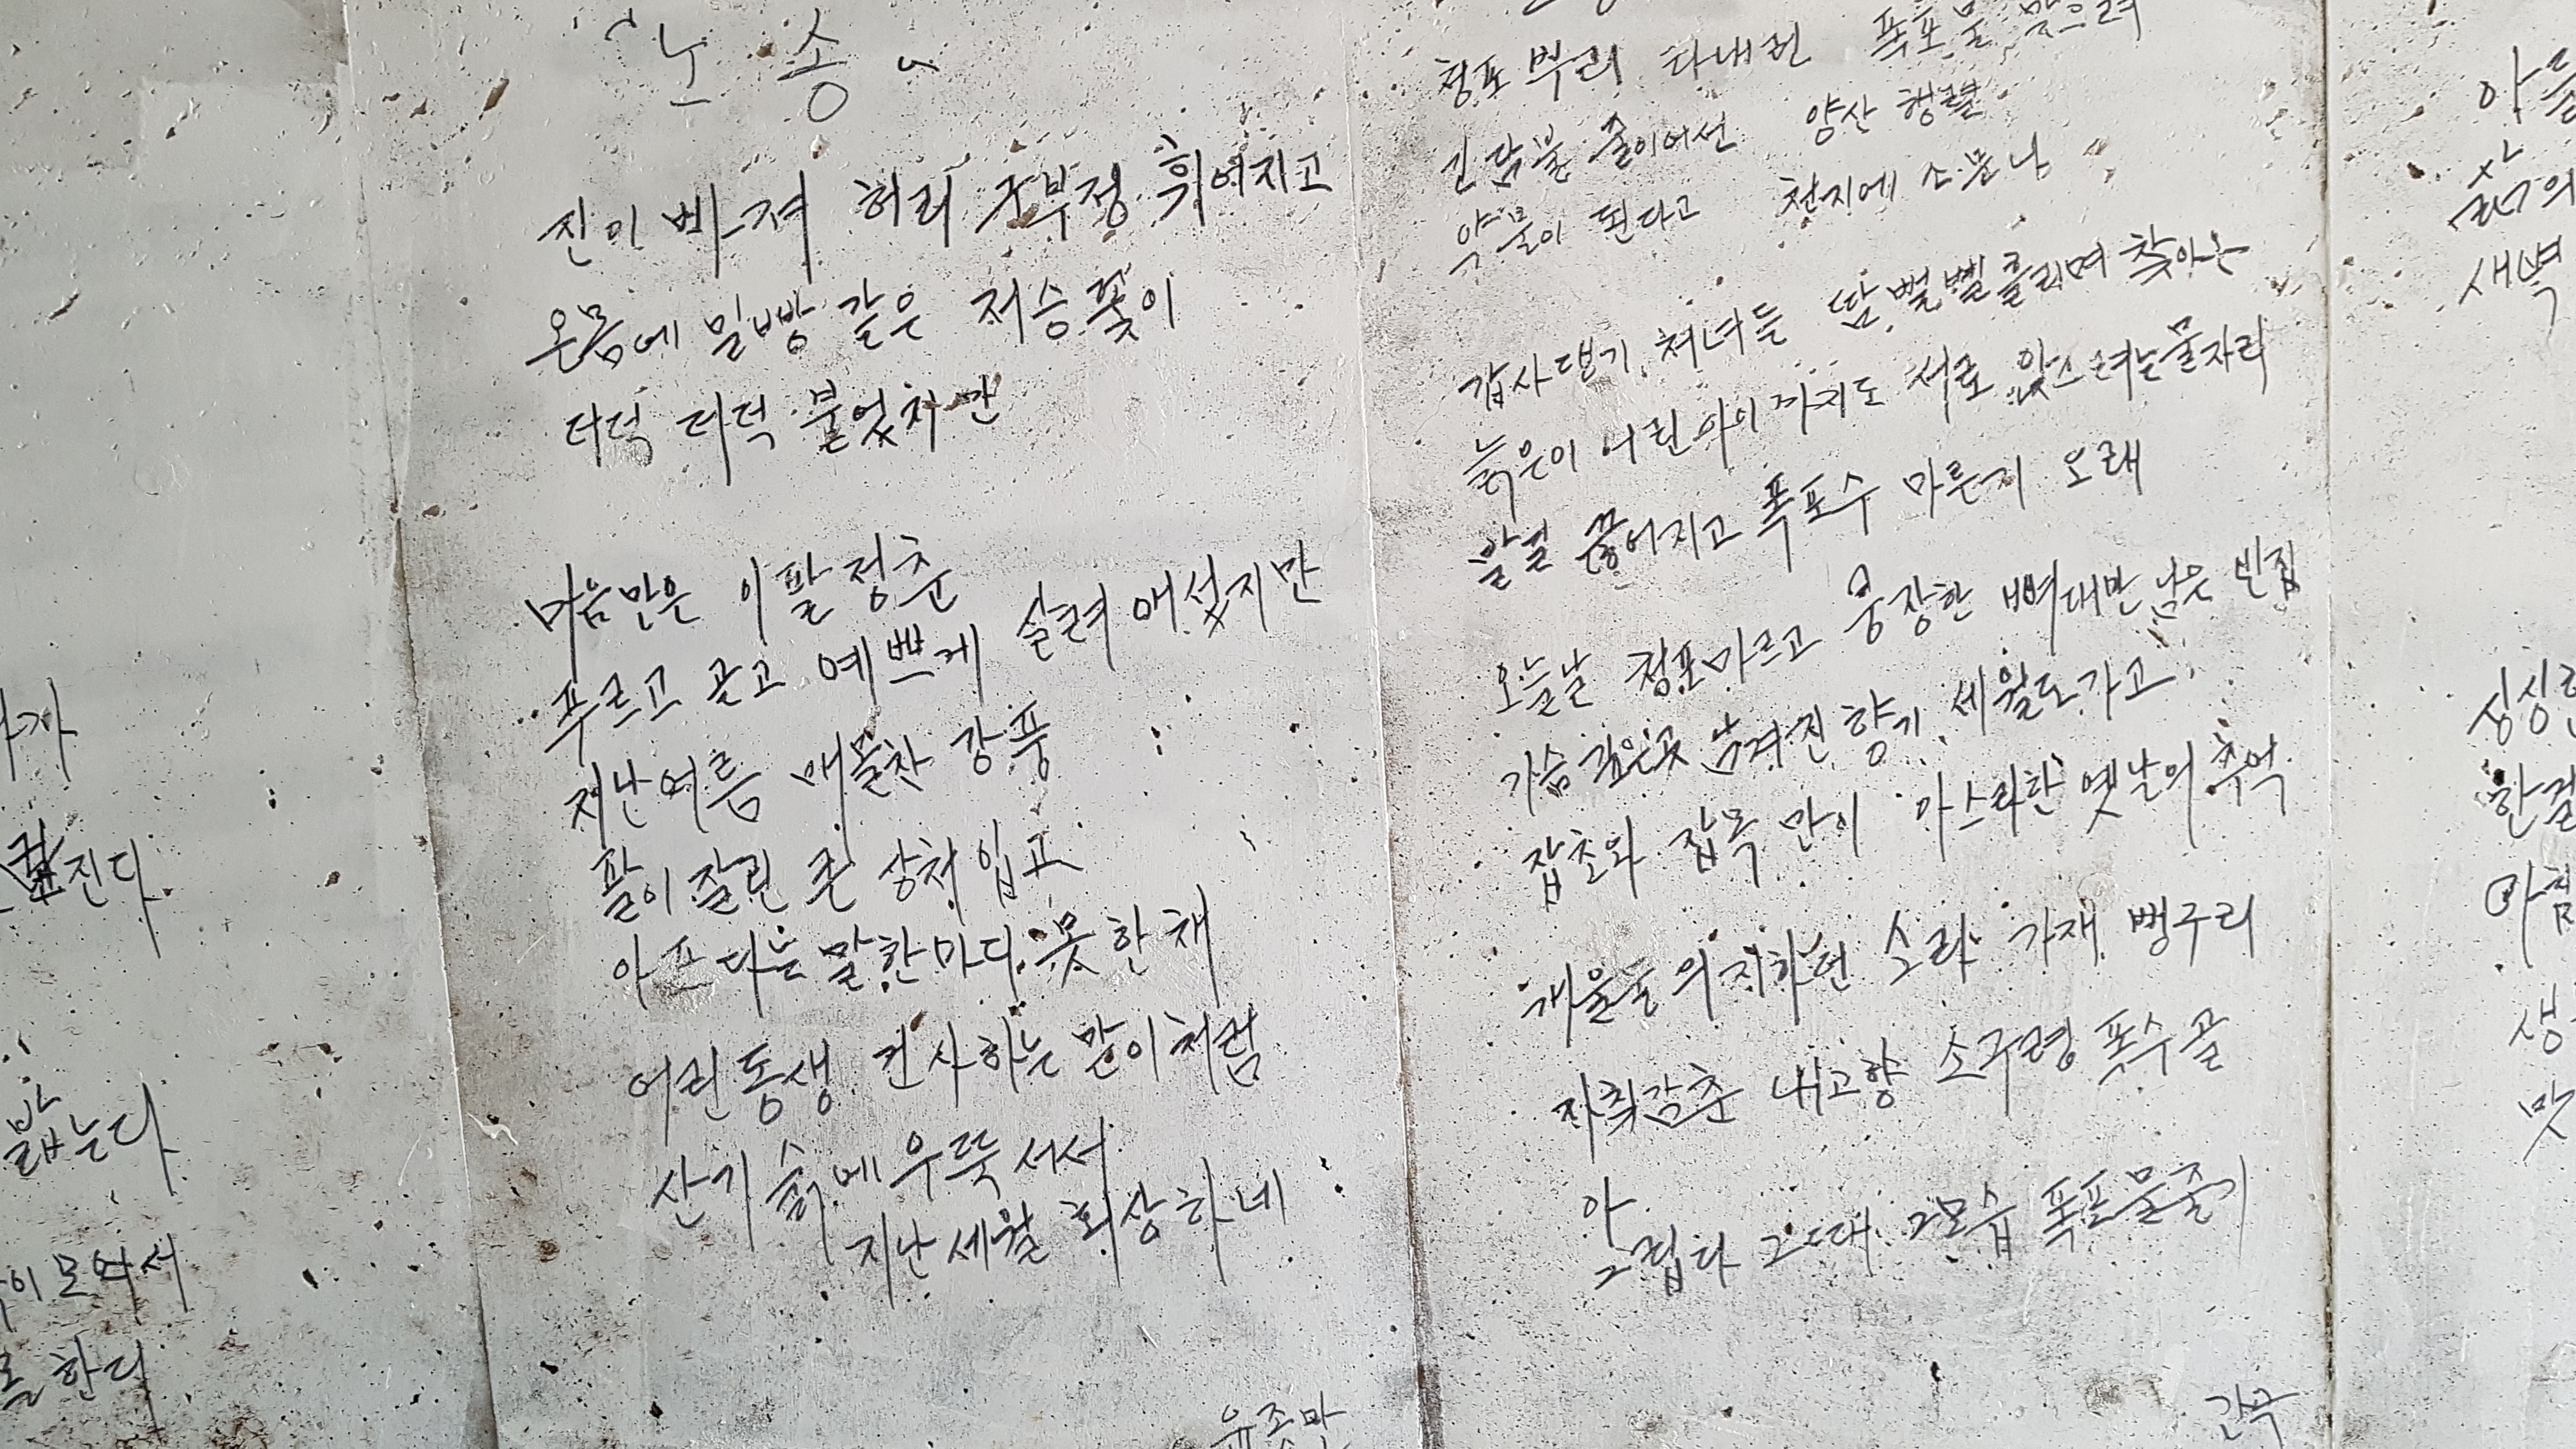 "노송"
진이 빠져 허리 구부정 휘여지고
온몸에 밀빵 같은 저승꽃이
더덕 더덕 붙었지만
마음만은 이팔청춘
푸르고 곧고 예쁘게 살려 애썼지만
지난여름 매몰찬 강풍
팔이 잘린 큰 상처 입고
아프다는 말한마디 못한채
어린동생 건사하는 맏이처럼
산기슭에 우뚝서서
지난세월 회상하네
청포뿌리 타내린 폭포물 맞으려
긴 담불 줄이어선 양산 행렬
약물이 된다고 천지에 소문나
갑사댕기 처녀들 땀 뻘뻘 흘리며 찾아온
늙은이 어린아이 까지도 서로 앞스려는 물자리
발길 끊어지고 폭포수 마른지 오래
오늘날 청포마르고 웅장한 뼈대만 남은 빈집
가슴 깊은곳 남겨진 향기 세월도가고
잡초와 잡목 만이 아스라한 옛날의 추억
개울물 의지하던 소라 가재 뻥구리
자취감춘 내고향 소구령 폭수골
아
그립다 그때 그모습 폭포물줄기
진다
밟는다
이 모여서
한다
새벽
생
맛